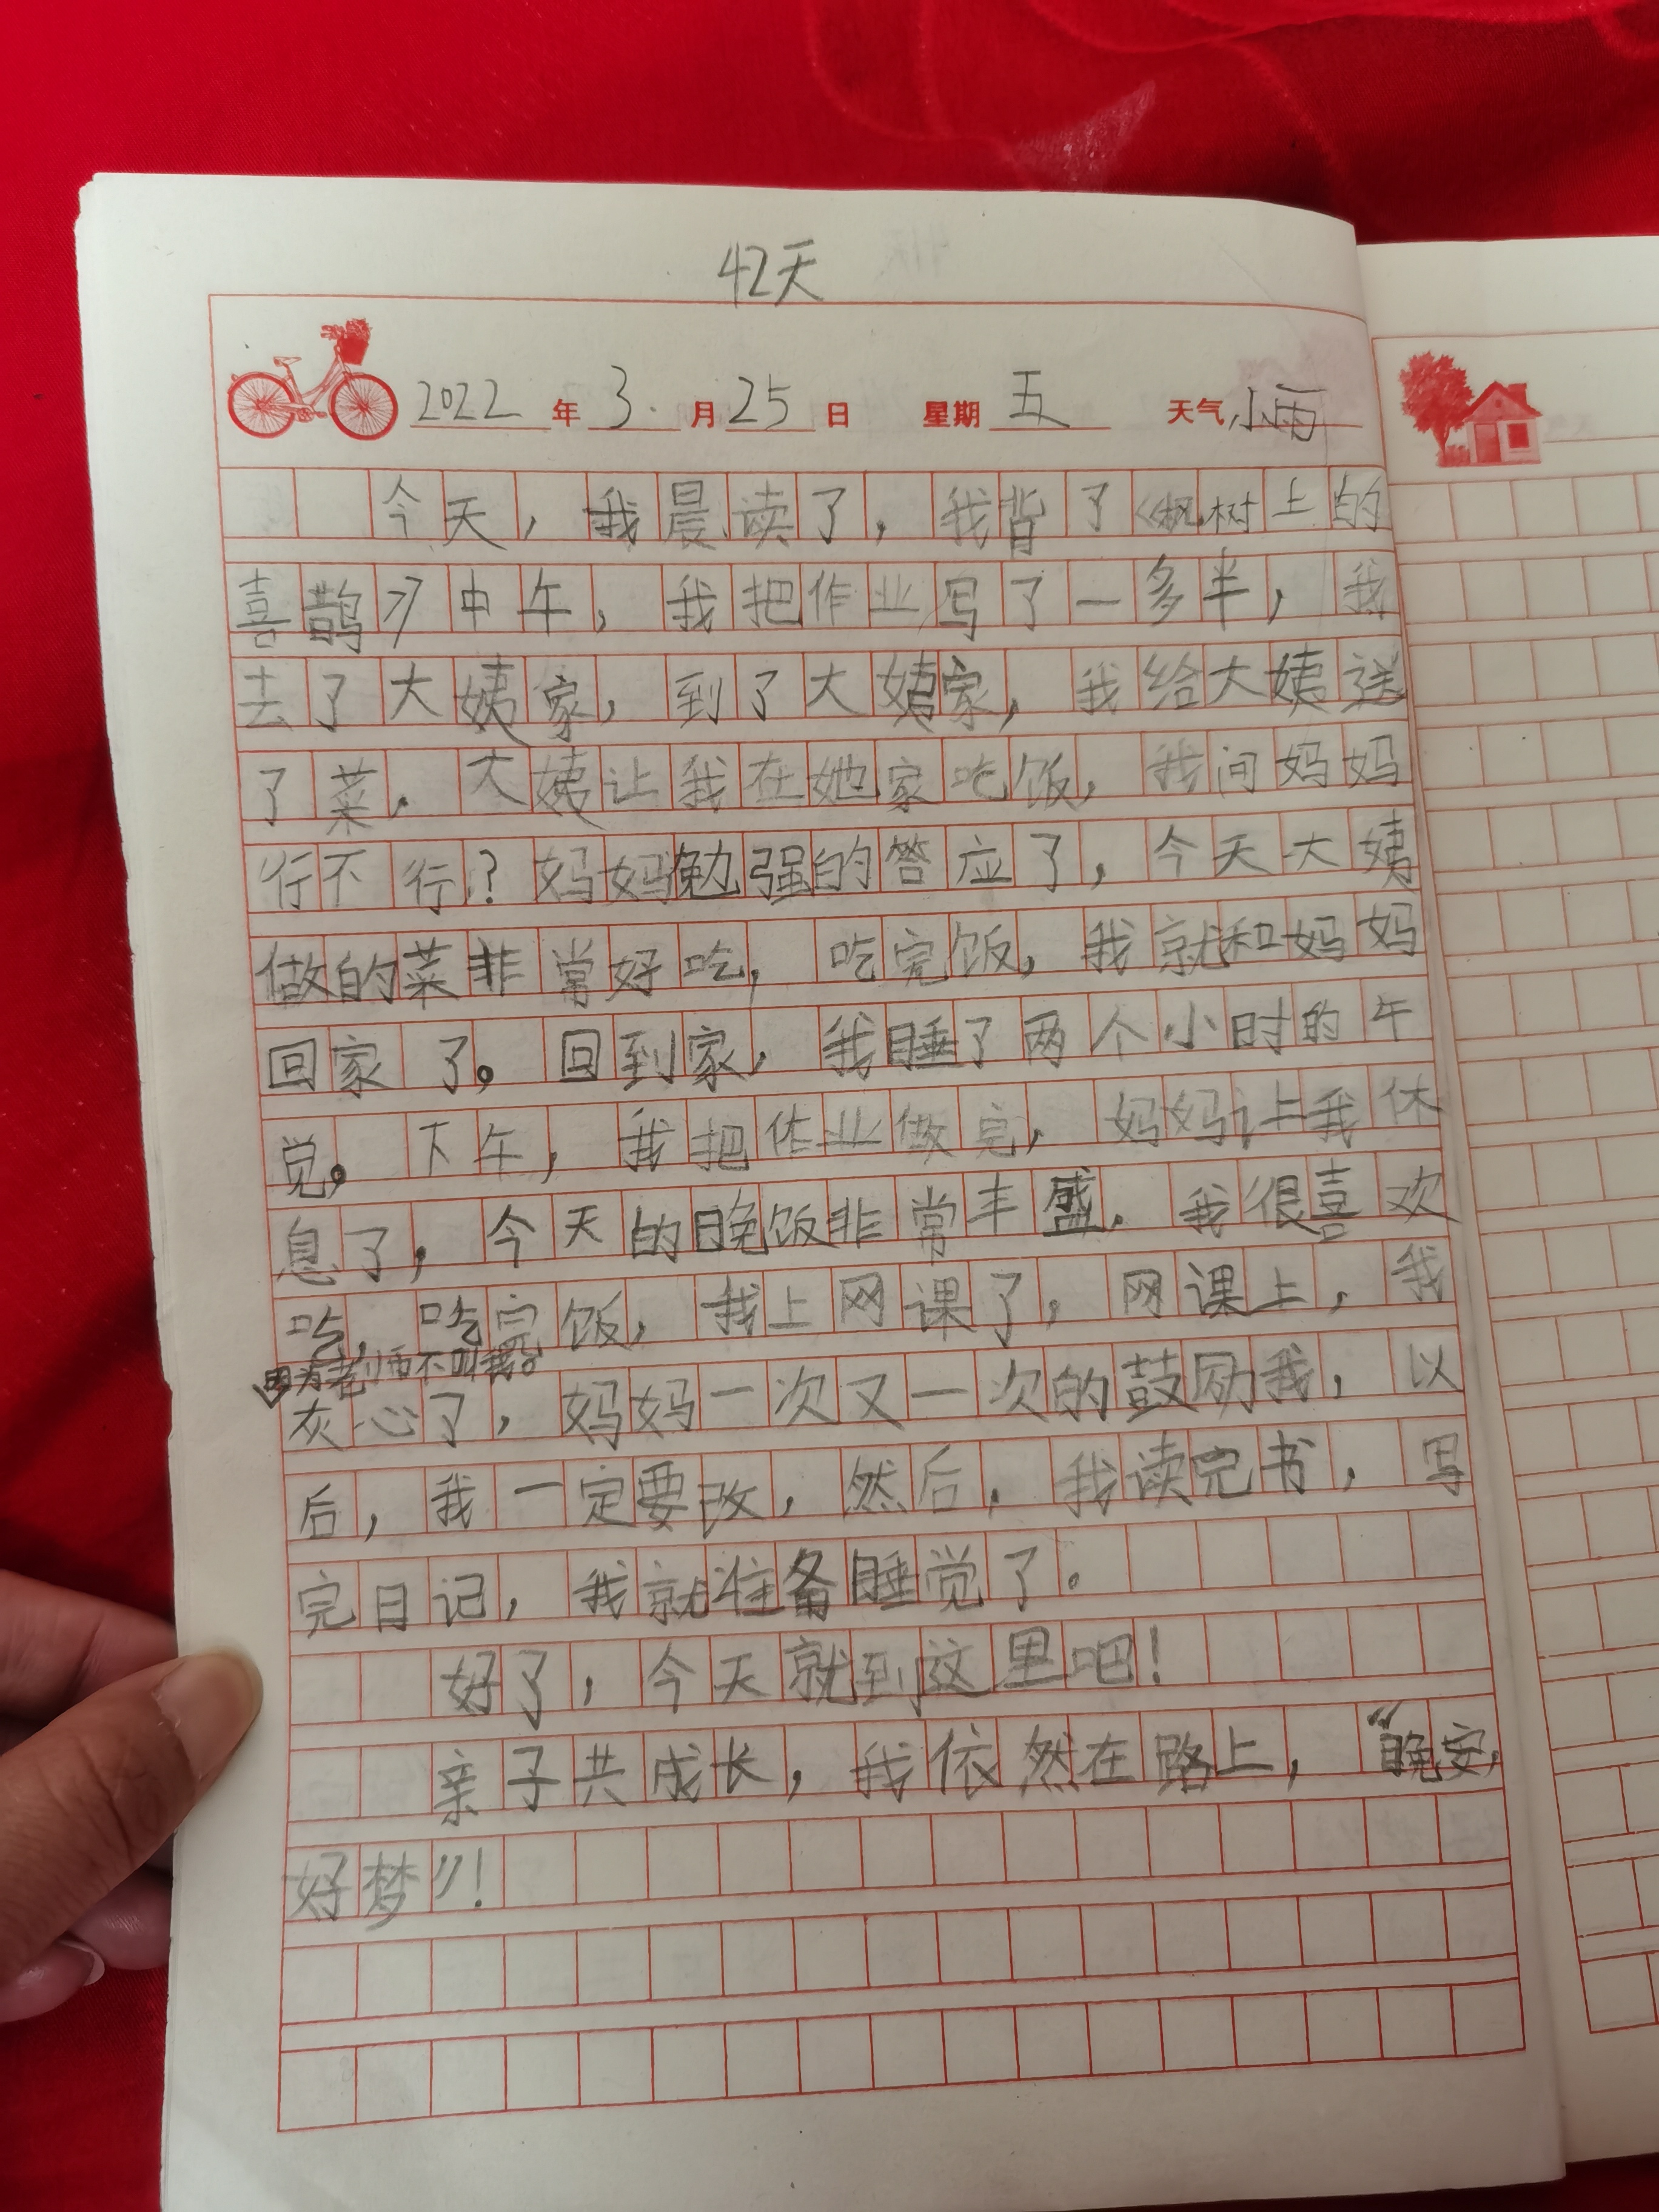 42天
2022年3.月25日 星期五 天气小雨
今天，我晨读了，我背了《枫树上的
喜鹊》中午，我把作业写了一多半，我
去了大姨家，到了大姨家，我给大姨送
了菜。大姨让我在她家吃饭，我问妈妈
行不行？妈妈勉强的答应了，今天大姨
做的菜非常好吃，吃完饭，我就和妈妈
回家了。回到家，我睡了两个小时的午
觉。下午，我把作业做完，妈妈让我休
息了，今天的晚饭非常丰盛。我很喜欢
吃，吃完饭，我上网课了，网课上，我
因为老师不叫我。
灰心了，妈妈一次又一次的鼓励我，以
后，我一定要改，然后，我读完书，写
完日记，我就准备睡觉了。
好了，今天就到这里吧！
亲子共成长，我依然在路上，“晚安，
好梦”！